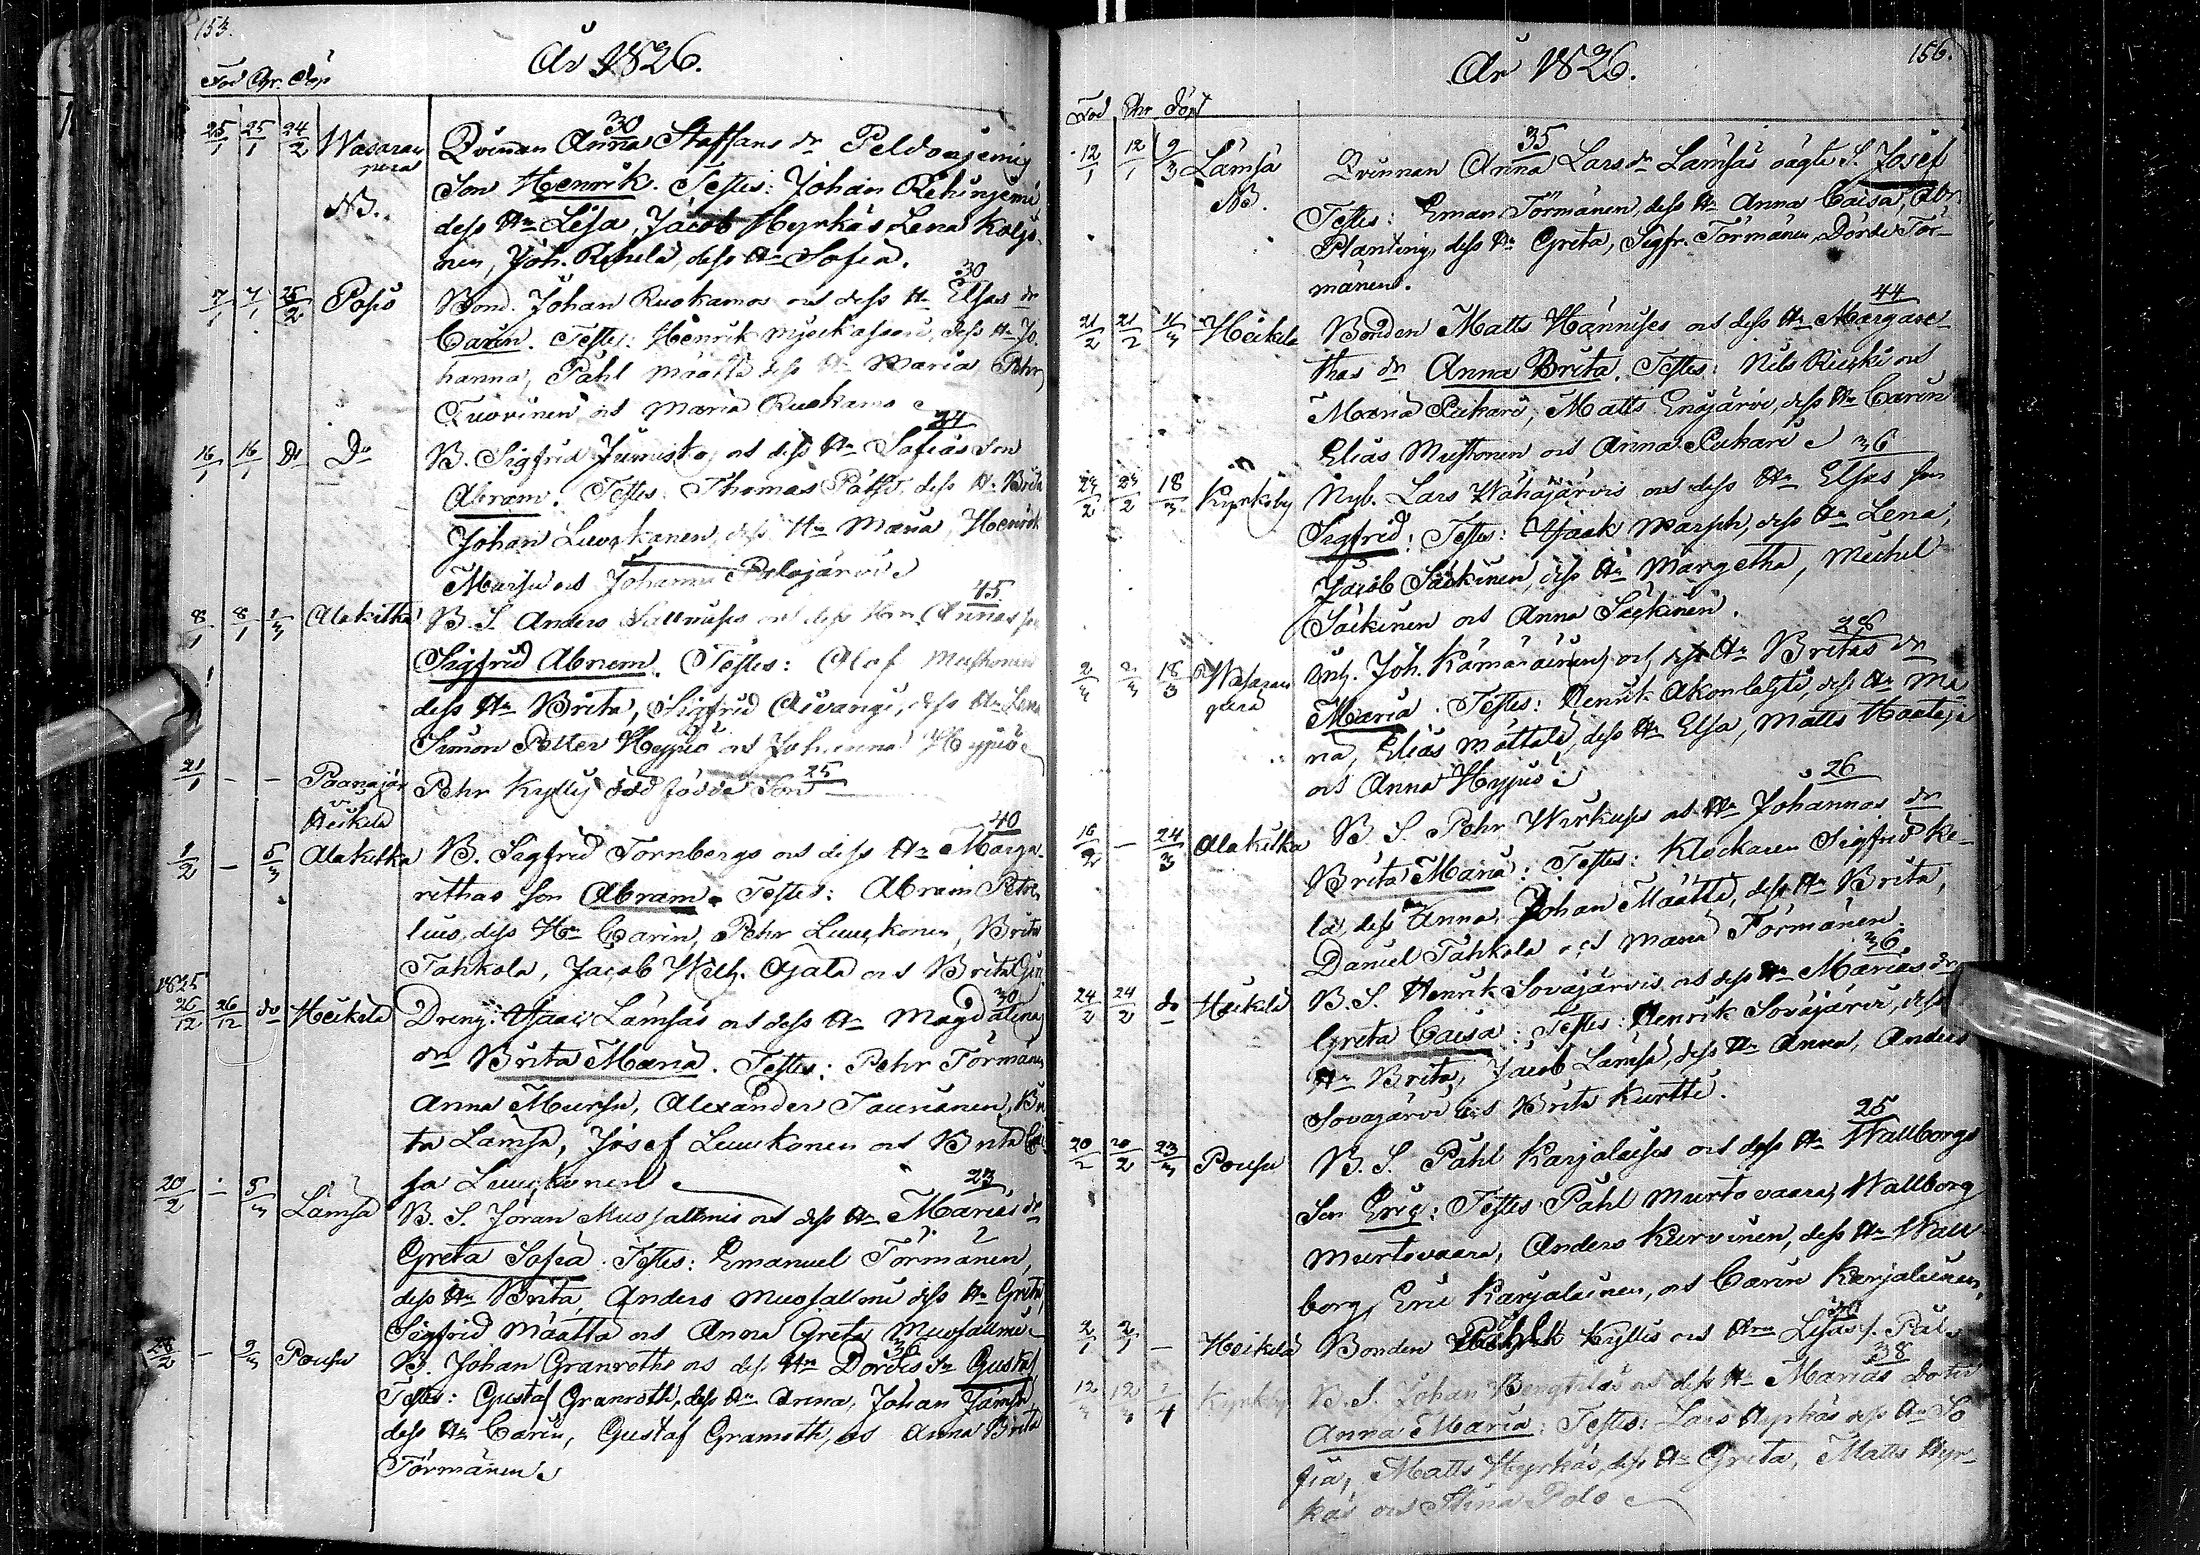 153.
År 1826.
Föd Chr. Döp
30
25/1 25/1 24/2 Wasaran Qvinnan Annas Staffans dr Peldoniemis
pera Son Henrik. Testes: Johan Rehinjemi
NB. dess Hu Lisa, Jacob Hyrkäs, Lena Koljo-
nen, Joh. Rehelä, dess Hu Sofia.
30
7/1 7/1 25/2 Posio Bond. Johan Ruokamos och dess H. Elsas dr
Carin. Testes: Henrik dess Hu Jo-
hanna, Påhl Määttä dess Hu Maria Pehr
Tuovinen och Maria Ruokamo
24
16/1 16/1 Do Do B. Sigfrid Jumisko och dess Hu Sofias Son
Abram. Testes: Thomas Pätsi, dess Hu Brita
Johan Luuskanen, dess Hu Maria, Henrik
Mursu och Johanna Pelojärvi
45
8/1 8/1 5/3 Alakitka B. S. Anders Sallnuses och dess Hu Annas son
Sigfrid Abnem. Testes: Olof Mustonen
dess Hu Brita, Sigfrid Aivangi, dess Hu Lena
Simon Petter Hyppiö och Johanna Hyppiö
25
21/1 - - Paanajär Pehr Kyllis död födde Son
vi
Heikelä
40
1/2 - 5/3 Alakitka B. Sigfrid Tornbergs och dess Hu Marga-
rethas Son Abram. Testes: Abram Petre-
lius, dess Hu Carin, Pehr Luuskonen, Brita
Tahkola, Jacob Wilh. Ojala och Brita
1825
30
26/12 26/12 do Heikelä Dreng. Isaac Lämsäs och dess Hu Magdalenas
dr Brita Maria. Testes: Pehr Törmänen
Anna Mursu, Alexander Tauriainen, Bri
ta Lämsä, Josef Luukonen och Brita Cai
sa Luuskonen
23
20/2 - 5/3 Lämsä B. S. Jöran Mursallmis och dess Hu Marias dr
Greta Sofia. Testes: Emanuel Törmänen,
dess Hu Brita, Anders Mursallmi dess Hu Greta,
Sigfrid Määttä och Anna Greta Mursallmi
36
28/2 - 9/3 Pousu B. Johan Granroths och dess Hu Dordis Sn Gustaf
Testes: Gustaf Granroth, dess Hu Anna, Johan Jämsä,
dess Hu Carin, Gustaf Granroth, och Anna Brita
Törmänen
156.
År 1826.
Föd Chr Döpt
35
12/1 12/1 9/3 Lämsä Qvinnan Anna Larsdr Lämsäs oägta S. Josef
NB. Testes: Eman Törmänen, dess Hu Anna Caisa, Abr.
Planting, dess Hu Greta, Sigfr. Törmänen, Dordi Tör-
mänen.
44
21/2 21/2 11/3 Heikelä Bonden Matts Hännises och dess Hu Margare-
thas dr Anna Brita. Testes: Nils Riuski och
Maria Pukari, Matts Enojärvi, dess Hu Carin
Elias Mustonen och Anna Pukari
36
23/2 23/2 18/3 Kyrkoby Nyb. Lars Wähäjärvis och dess Hu Elsas son
Sigfrid: Testes: Isaak Marsch, dess Hu Lena,
Jacob Säckinen, dess Hu Margetha, Michel
Säckinen och Anna Säckinen.
28
2/3 2/3 18/3 Wasaran Inh. Joh. Kämäräinens och dess Hu Britas dr
pera Maria. Testes: Henrik Akonlahti, dess Hu Ma
ria, Elias Mättälä, dess Hu Elsa, Matts Haataja
och Anna Hyppiö
26
16/2 - 24/3 Alakitka B. S. Pehr Wirkuses och Hu Johannas dr
Brita Maria: Testes: Klockaren Sigfrid Ke-
lä, dess Hu Anna, Johan Määttä, dess Hu Brita,
Daniel Tahkola och Maria Törmänen.
36
24/2 24/2 do Heikelä B. S. Henrik Sovajärvis och dess Hu Marias dr
Greta Caisa: Testes: Henrik Sovajärvi, dess
Hu Brita, Jacob Lämsä, dess Hu Anna, Anders
Sovajärvi och Brita Kurtti.
25
20/2 20/2 23/3 Pousu B. S. Påhl Karjalaises och dess Hu Wallborgs
Son Eric: Testes Påhl Murtovaara, Wallborg
Murtovaara, Anders Kurvinen, dess Hu Wall
borg, Eric Karjalainen, och Carin Karjalainen,
2/1 2/1 - Heikelä Bonden Påhl Kyllis och Hu Lisas s. Pål
38
12/3 12/3 1/4 Kyrkby B. S. Johan Bengtilas och dess Hu Marias Doter
Anna Maria: Testes: Lars Hyrkäs dess Hu So
fia, Matts Hyrkäs, dess Hu Greta, Matts Hyr-
käs och Stina Polo